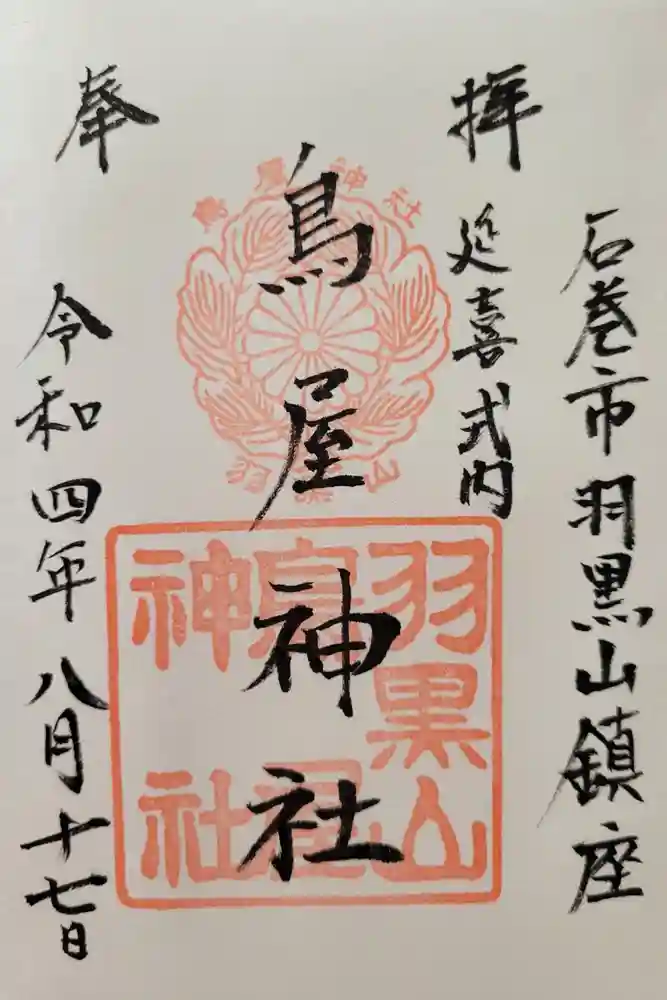 石巻市羽黒山鎮座
拝
延喜式内
鳥屋神社
奉
令和四年八月十七日
鳥屋神社
羽黒山
羽黒山
鳥屋
神社